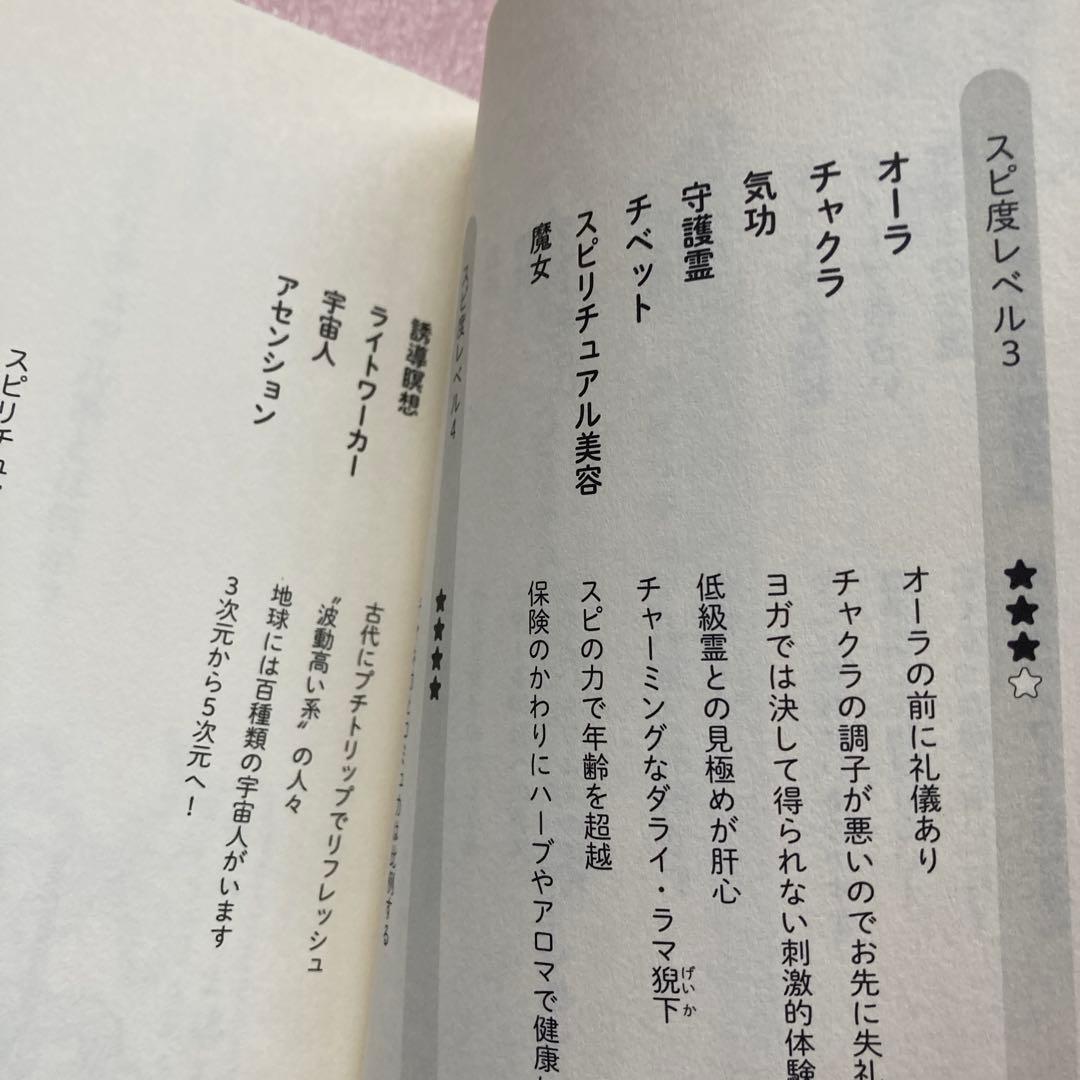 スピ度レベル3 ★★★☆
オーラ オーラの前に礼儀あり
チャクラ チャクラの調子が悪いのでお先に失礼
気功 ヨガでは決して得られない刺激的体験
守護霊 低級霊との見極めが肝心
チベット チャーミングなダライ・ラマ猊下
げいか
スピリチュアル美容 スピの力で年齢を超越
魔女 保険のかわりにハーブやアロマで健康
スピ度レベル4 ★★★★
誘導瞑想 古代にプチトリップでリフレッシュ
ライトワーカー “波動高い系”の人々
宇宙人 地球には百種類の宇宙人がいます
アセンション 3次元から5次元へ!
スピリチュ